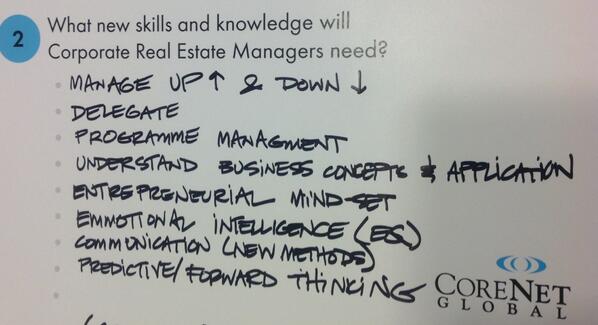 2
What new skills and knowledge will
Corporate Real Estate Managers need?
• MANAGE UP ↑ & DOWN ↓
• DELEGATE
• PROGRAMME MANAGMENT
• UNDERSTAND BUSINESS CONCEPTS & APPLICATION
• ENTREPRENEURIAL MIND-SET
• EMMOTIONAL INTELLIGENCE (EQ)
• COMMUNICATION (NEW METHODS)
• PREDICTIVE/FORWARD THINKING
•
CORENET
GLOBAL